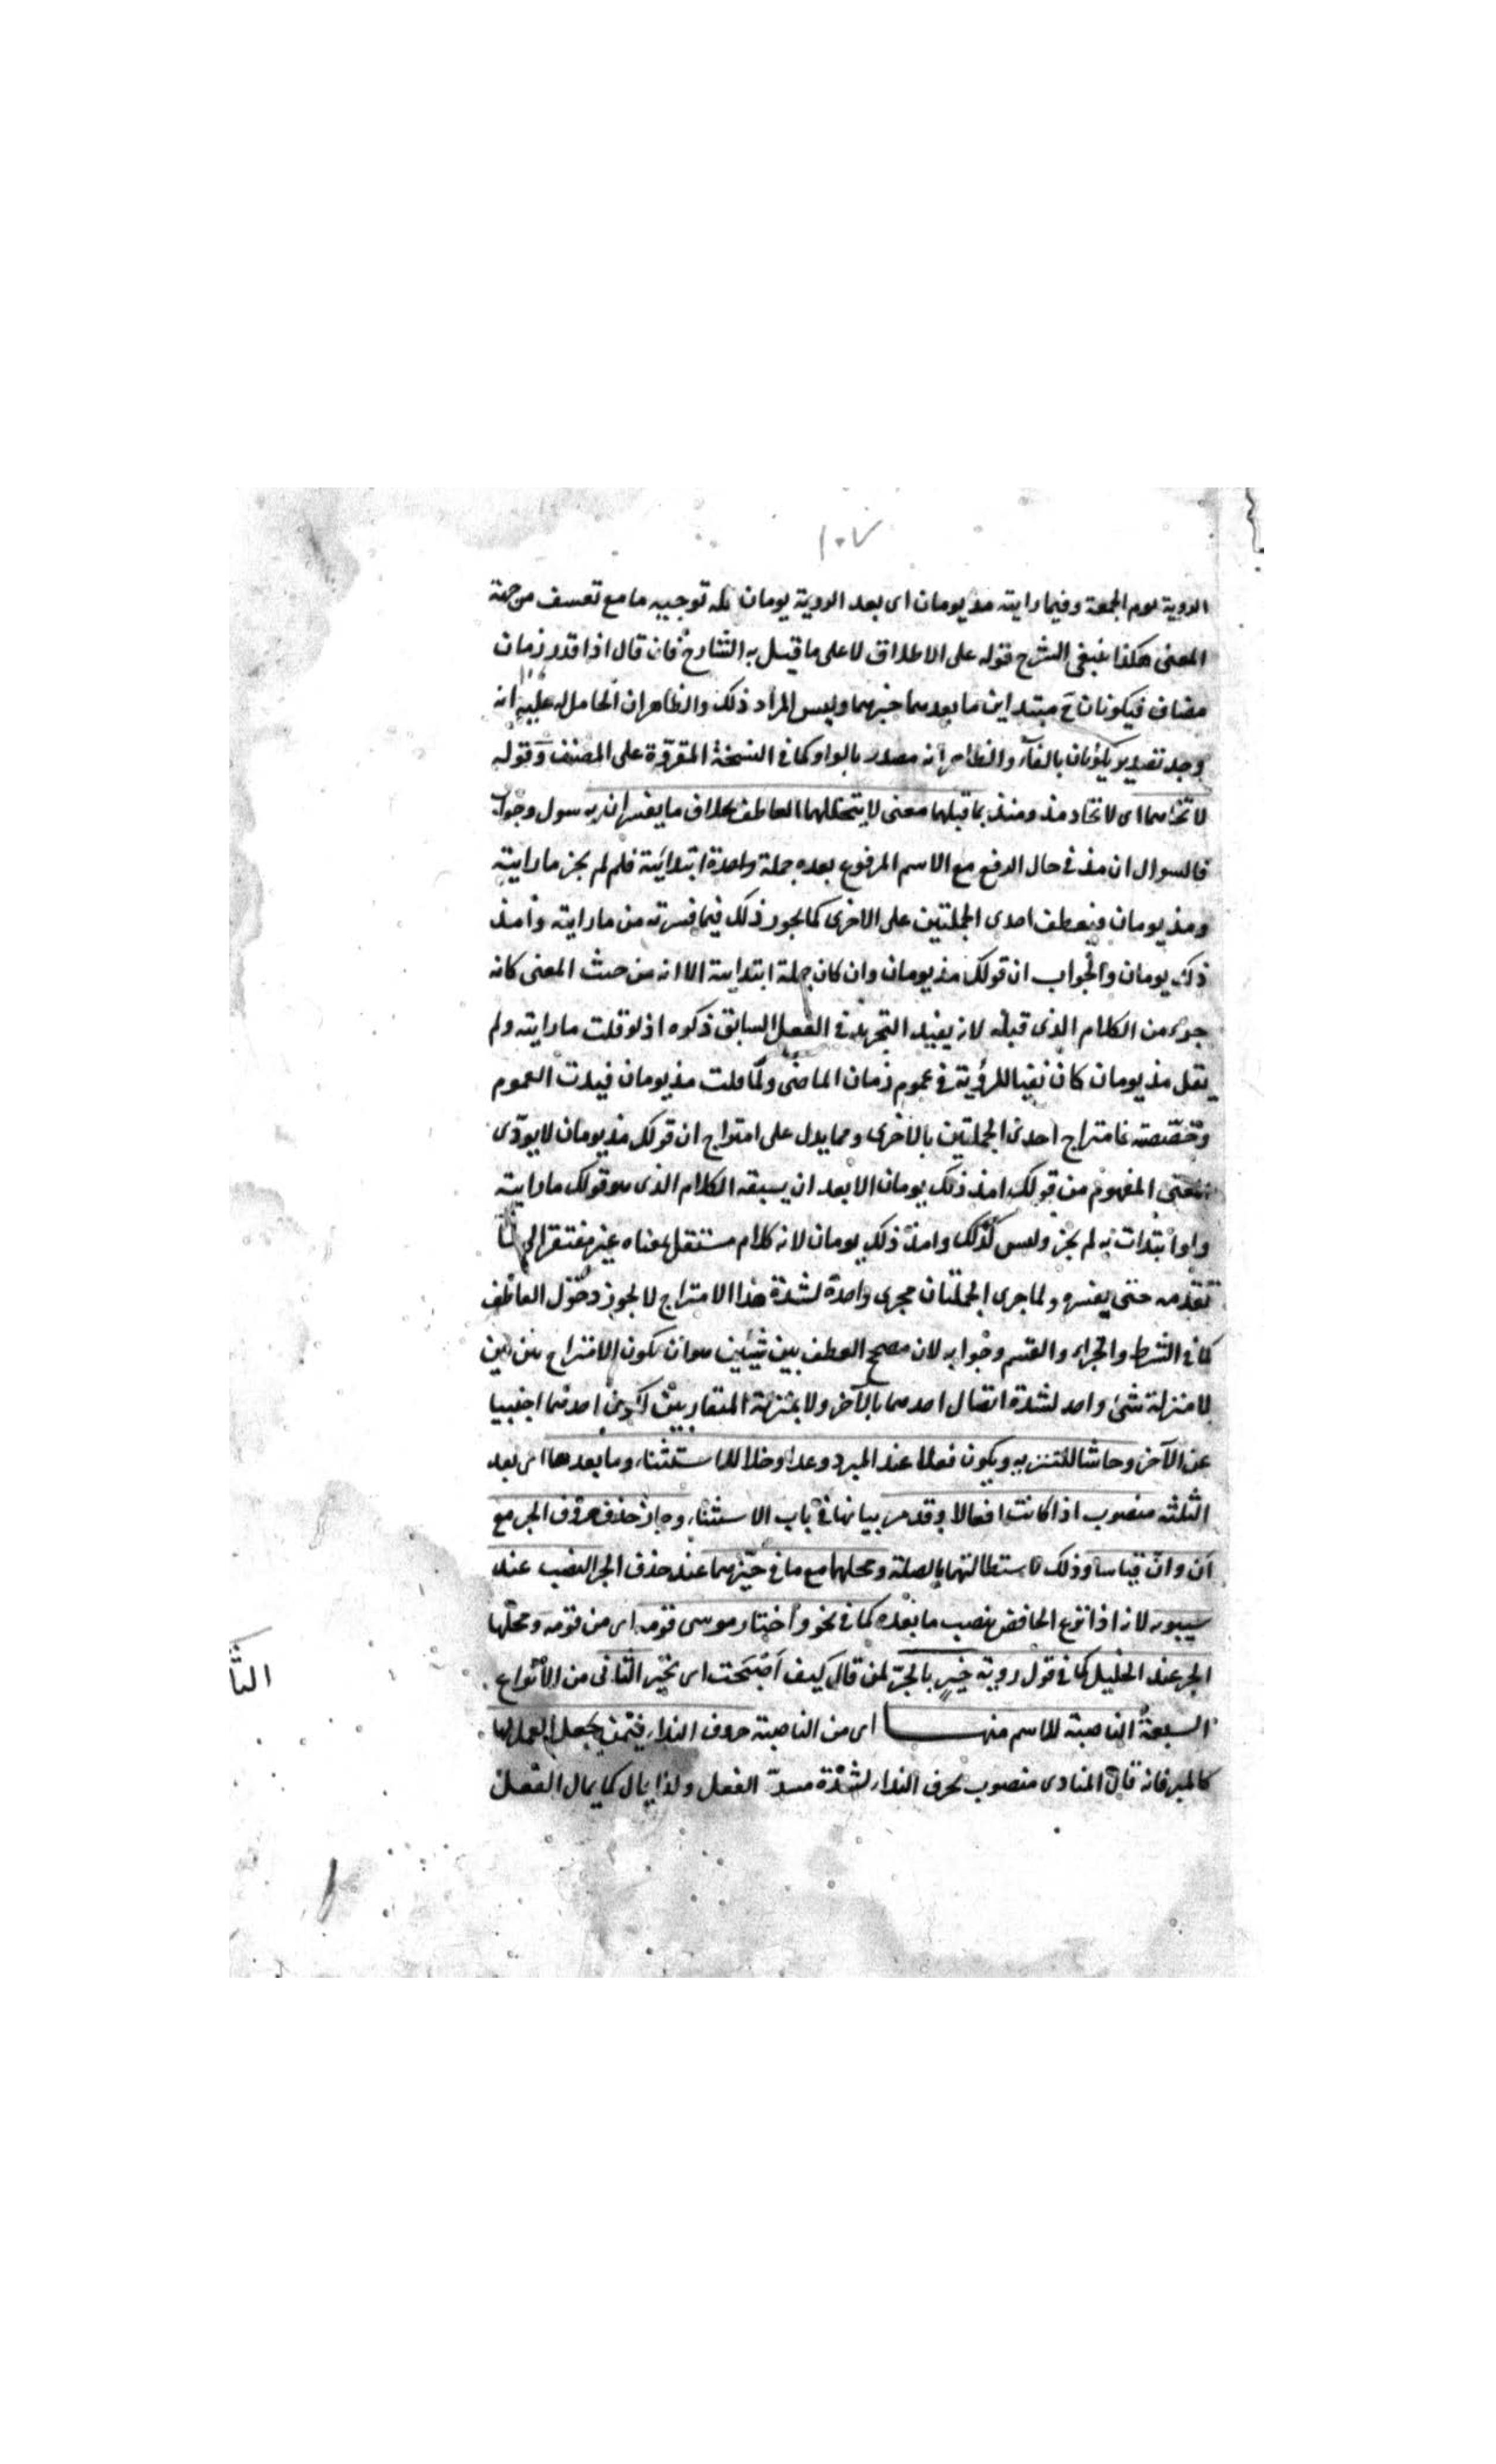 ١٠٧
الروية يوم الجمعة وفيما رايته مذ يومان اى بعد الروية يومان له توجيه ما مع تعسف من جهة
المعنى هكذا ينبغى الشرح قوله على الاطلاق لا على ما قيل به الشارح فان قال اذا قدر زمان
مضاف فيكونان ح مبتداين ما بعدهما خبرهما وليس المراد ذلك والظاهر ان الحامل له عليه انه
وجد تصدير يكونان بالفآء والظاهر انه مصدر بالواو كما فى النسخة المقروة على المصنف وقوله
لاتحادهما اى لاتحاد مذ ومنذ بما قبلهما معنى لا يتخللهما العاطف بخلاف ما يفسران به سول وجواب
فالسوال ان مذ فى حال الرفع مع الاسم المرفوع بعده جملة واحدة ابتدائية فلم لم يجز ما رايته
ومذ يومان فيعطف احدى الجملتين على الاخرى كما يجوز ذلك فيما فسرته من ما رايته وامد
ذلك يومان والجواب ان قولك مذ يومان وان كان جملة ابتداية الا انه من حيث المعنى كانه
جزء من الكلام الذى قبله لانه يفيد التجريد فى الفعل السابق ذكره اذ لو قلت ما رايته ولم
يقل مذ يومان كان نفيا للرؤية فى عموم زمان الماضى ولما قلت مذ يومان قيدت العموم
وخصصته فامتزاج احدى الجملتين بالاخرى ومما يدل على امتزاج ان قولك مذ يومان لا يودى
المعنى المفهوم من قولك امد ذلك يومان الا بعد ان يسبقه الكلام الذى هو قولك ما رايته
ولو ابتدات به لم يجز وليس كذلك وامد ذلك يومان لانه كلام مستقل بمعناه غير مفتقر الى
تقدمه حتى يفسره ولما جرى الجملتان مجرى واحدة لشدة هذا الامتزاج لا يجوز دخول العاطف
كما فى الشرط والجزاء والقسم وجوابه لان مصحح العطف بين شيئين هو ان يكون الامتزاج بين بين
لا منزلة شئ واحد لشدة اتصال احدهما بالآخر ولا بمنزلة احدهما اجنبيا
عن الآخر وحاشا للتنزيه ويكون فعلا عند المبرد وعدا وخلا للاستثناء وما بعدها اى بعد
الثلثة منصوب اذا كانت افعالا وقد مر بيانها فى باب الاستثناء وجاز حذف حروف الجر مع
اَن وانّ قياسا وذلك لاستطالتهما بالصلة ومحلهما مع ما فى حيزهما عند حذف الجر النصب عند
سيبويه لانه اذا نزع الخافض ينصب ما بعده كما فى نحو واختار موسى قومه اى من قومه ومحلها
الجر عند الخليل كما فى قول روبة خيرٍ بالجرّ لمن قال كيف اَصْبَحت اى بخير الثانى من الانواع
السبعة الناصبة للاسم منها اى من الناصبة حروف النداء فيمن يجعل العمل لها
كالمبرد فانه قال المنادى منصوب بحرف النداء لشدة مسدّ الفعل ولذا يمال كما يمال الفعل